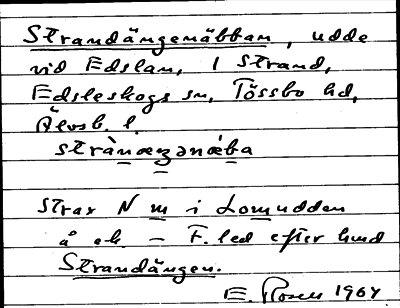 Strandängenäbban, udde
vid Edslan, 1 Strand,
Edsleskogs sn, Tössbo hd,
Älvsb. l.
strànæŋənæ̀ba
strax N m i Lomudden
å ek. – F. led efter hmd
Strandängen.
E. Rosen 1964